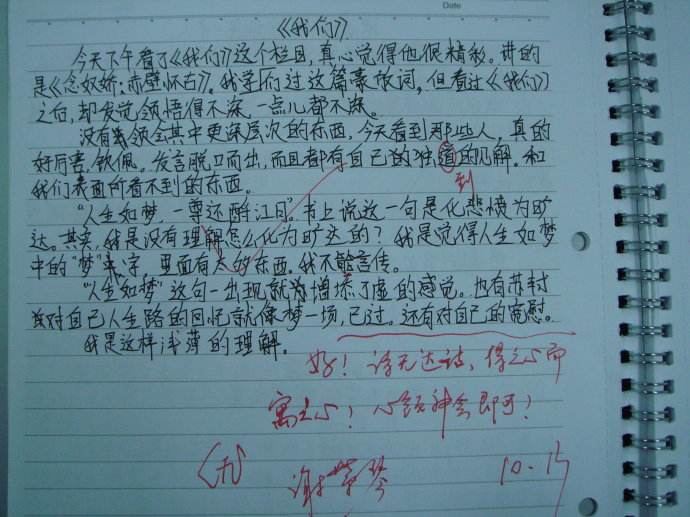 Date
《我们》
今天下午看了《我们》这个栏目,真心觉得他很精彩。讲的
是《念奴娇·赤壁怀古》。我学们过这篇豪放词,但看过《我们》
之后,却发觉领悟得不深,一点儿都不深。
没有我领会其中更深层次的东西,今天看到那些人,真的
好厉害,钦佩。发言脱口而出,而且都有自己的独道的见解。和
到
我们表面所看不到的东西。
"人生如梦,一尊还酹江月"。书上说这一句是化悲愤为旷
达。其实,我是没有理解怎么化为旷达的?我是觉得人生如梦
中的"梦"字,里面有太的东西,我不能言传。
"人生如梦"这句一出现就增添了虚的感觉。也有苏轼
对自己人生路的回忆就像梦一场,已过。还有对自己的宽慰。
我是这样浅薄的理解。
好!诗无达诂,得之心而
寓之心!心领神会即可!
谢
10.15